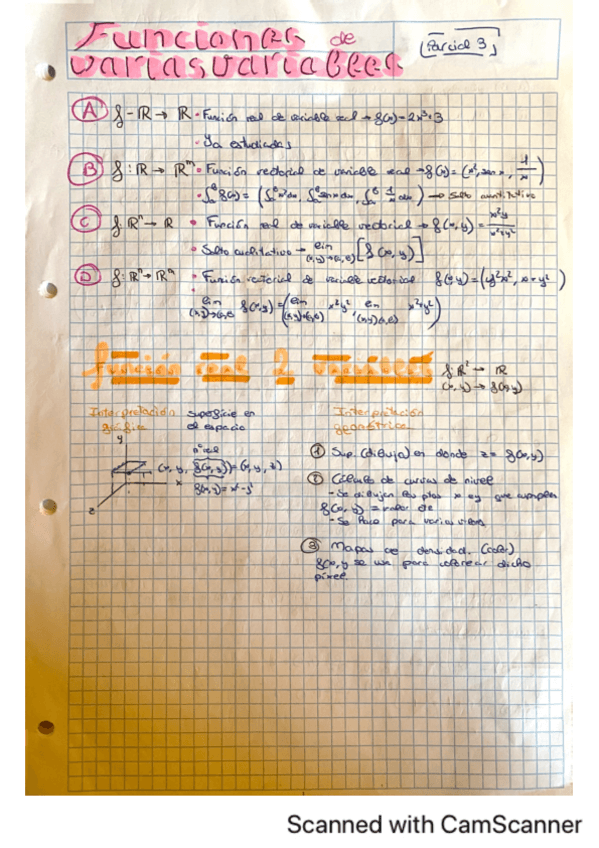 Funciones de
varias variables
Parcial 3
A f - ℝ → ℝ • Función real de variable real → f(x) = 2x²+3
• Ya estudiadas
B f: ℝ → ℝᵐ • Función vectorial de variable real → f(x) = (x², sen x, 1/x)
• ∫ f(x) = (∫ x² dx, ∫ sen x dx, ∫ 1/x dx) → Salto cuantitativo
C f: ℝⁿ → ℝ • Función real de variable vectorial → f(x,y) = x²y/x²+y²
• Salto cualitativo → lim [f(x,y)]
D f: ℝⁿ → ℝᵐ • Función vectorial de variable vectorial f(x,y) = (y²x², x+y²)
lim f(x,y) = (lim x²y², lim x+y²)
función real 2 variables f: ℝ² → ℝ
(x,y) → f(x,y)
Interpretación gráfica
superficie en el espacio
y
nivel
(x, y, f(x,y)) = (x, y, z)
x
f(x,y) = x²-y²
z
Interpretación geométrica
① Sup. (dibuja) en donde z = f(x,y)
② Cálculo de curvas de nivel
- Se dibujan los ptos x e y que cumplen
f(x,y) = valor de
- Se hace para varios
③ Mapas de densidad. (color)
f(x,y se usa para colorear dicho
píxel
Scanned with CamScanner